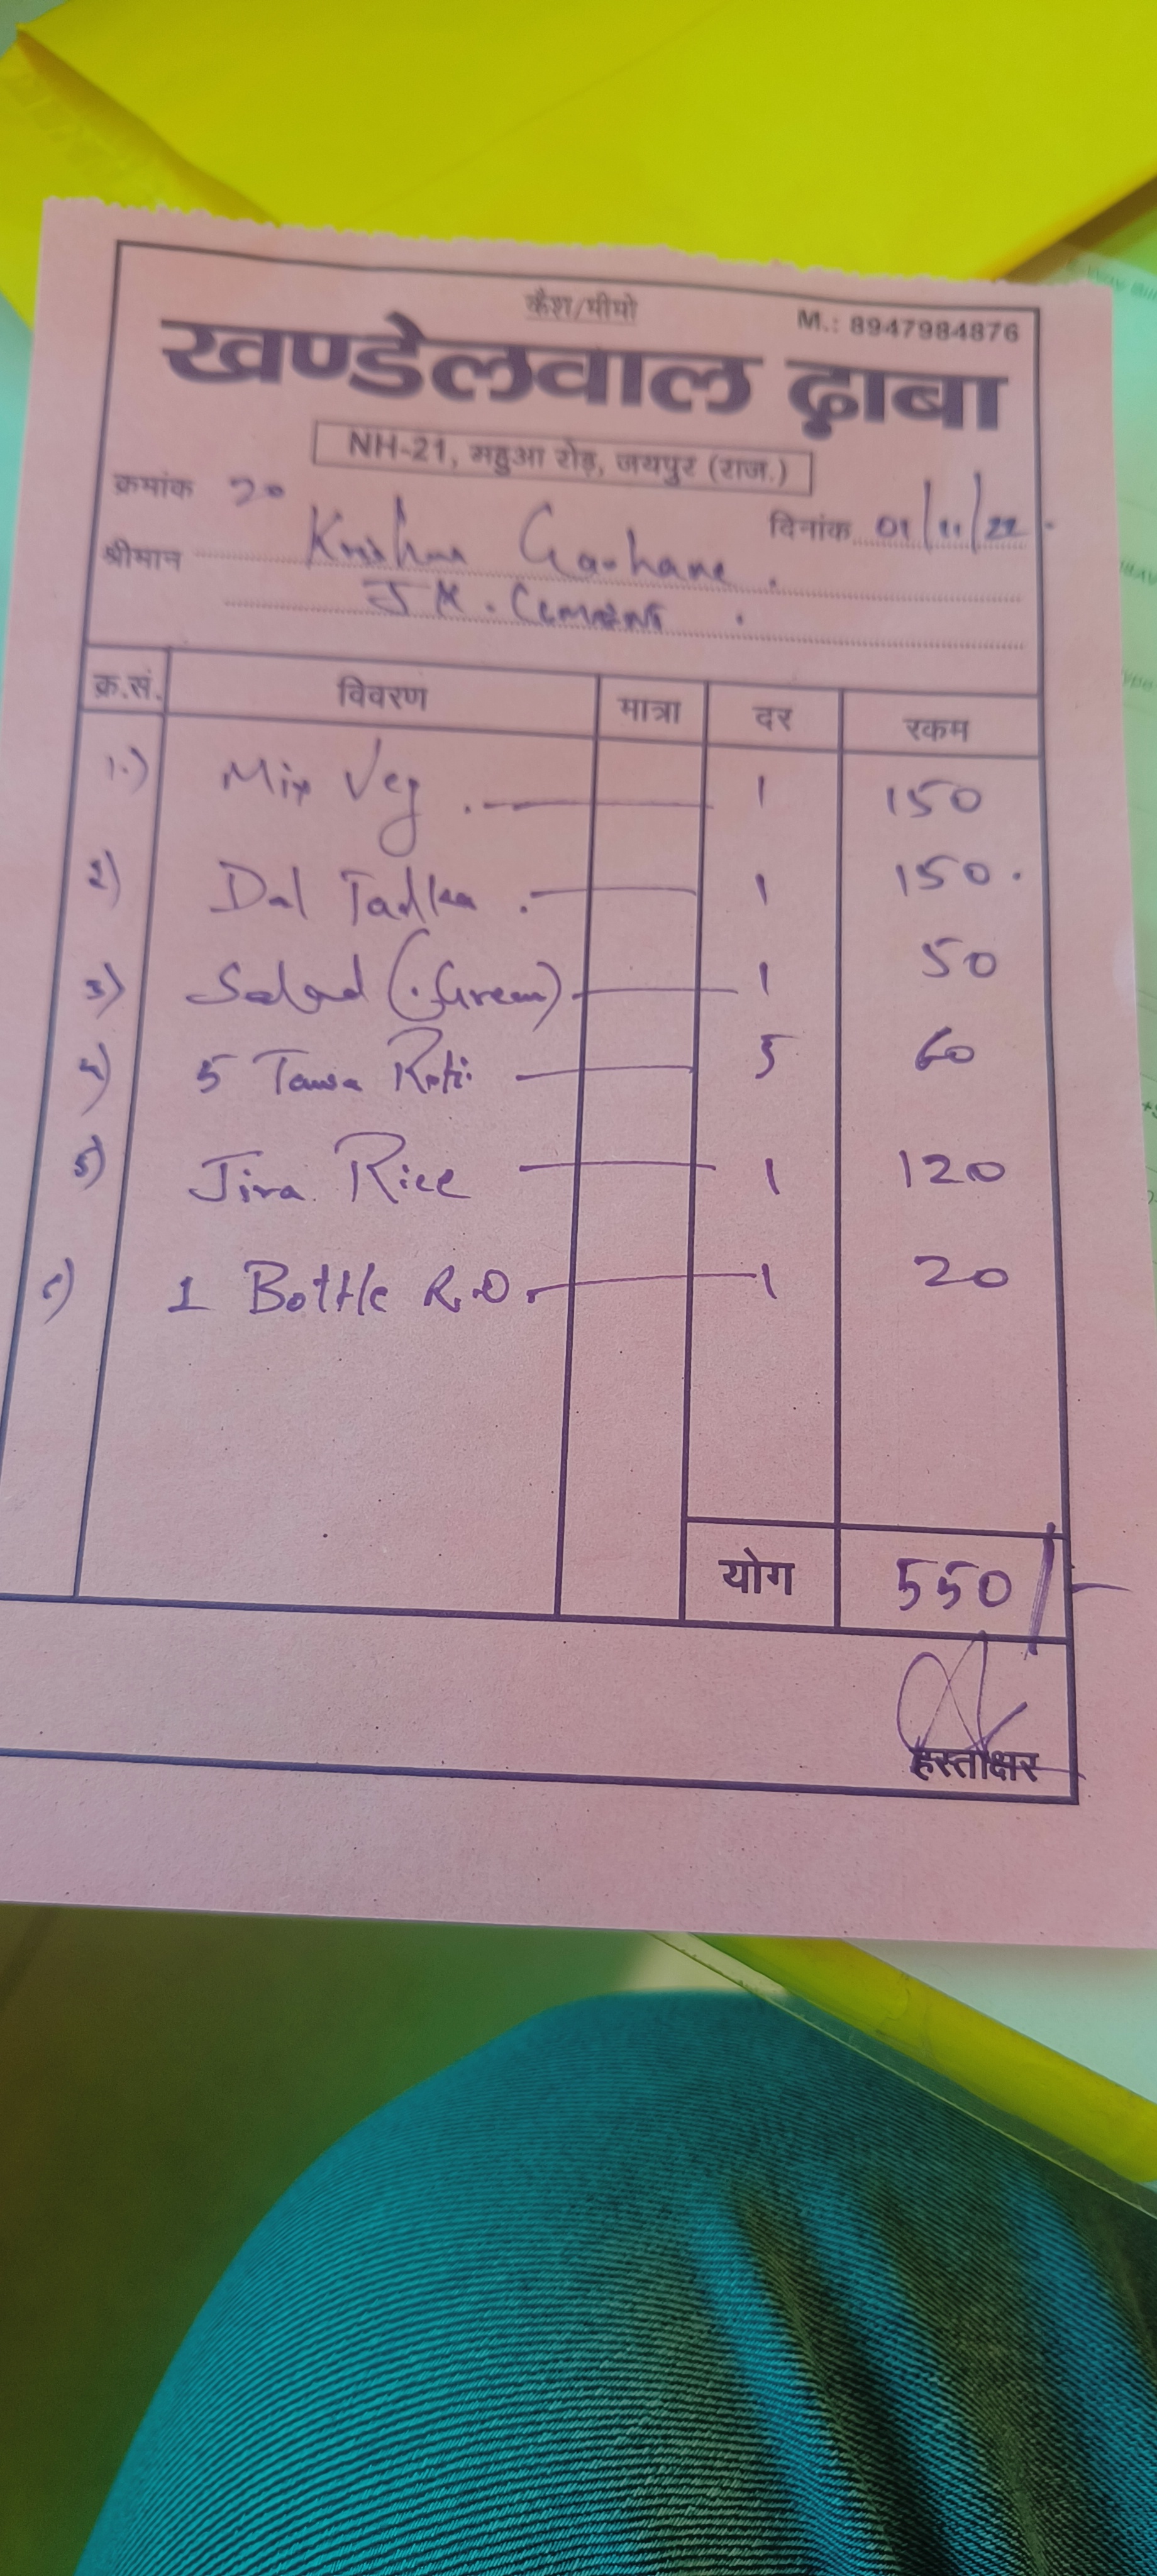 कैश/मीमो
M.: 8947984876
खण्डेलवाल ढ़ाबा
NH-21, महुआ रोड़, जयपुर (राज.)
क्रमांक 20
दिनांक 01/11/22
श्रीमान Krishna
J.K. Cement
क्र.सं. विवरण मात्रा दर रकम
1.) Mix Veg. 1 150
2) Dal Tadka. 1 150.
3) Salad (Green) 1 50
4) 5 Tawa Roti 5 60
5) Jira Rice 1 120
6) 1 Bottle R.O. 1 20
योग 550/-
हस्ताक्षर